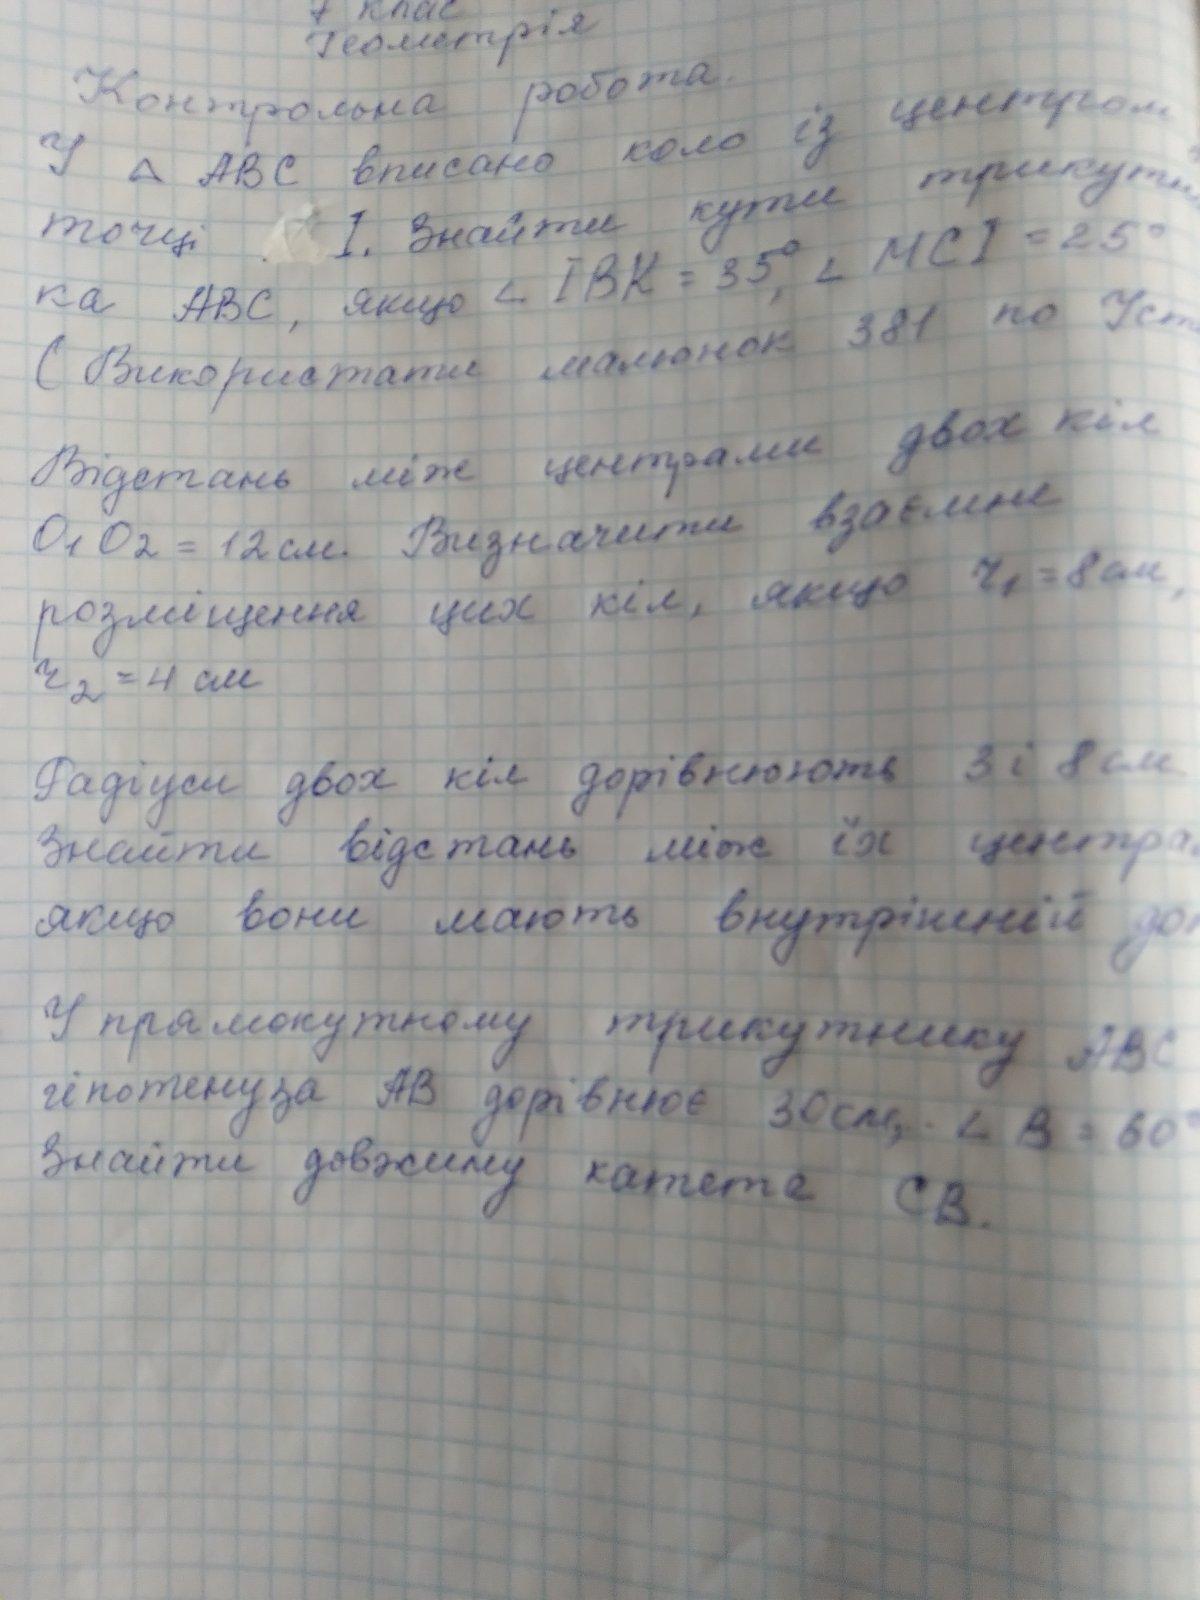 7 клас
Геометрія
Контрольна робота.
У △ ABC вписано коло із центром
точці I. Знайти кути трикутни
ка ABC, якщо ∠ IBK = 35°, ∠ MCI = 25°
(Використати малюнок 381 по Уст
Відстань між центрами двох кіл
O₁O₂ = 12 см. Визначити взаємне
розміщення цих кіл, якщо r₁ = 8 см,
r₂ = 4 см
Радіуси двох кіл дорівнюють 3 і 8 см
Знайти відстань між їх центрам
якщо вони мають внутрішній дот
У прямокутному трикутнику ABC
гіпотенуза AB дорівнює 30 см, ∠ B = 60°
Знайти довжину катета CB.